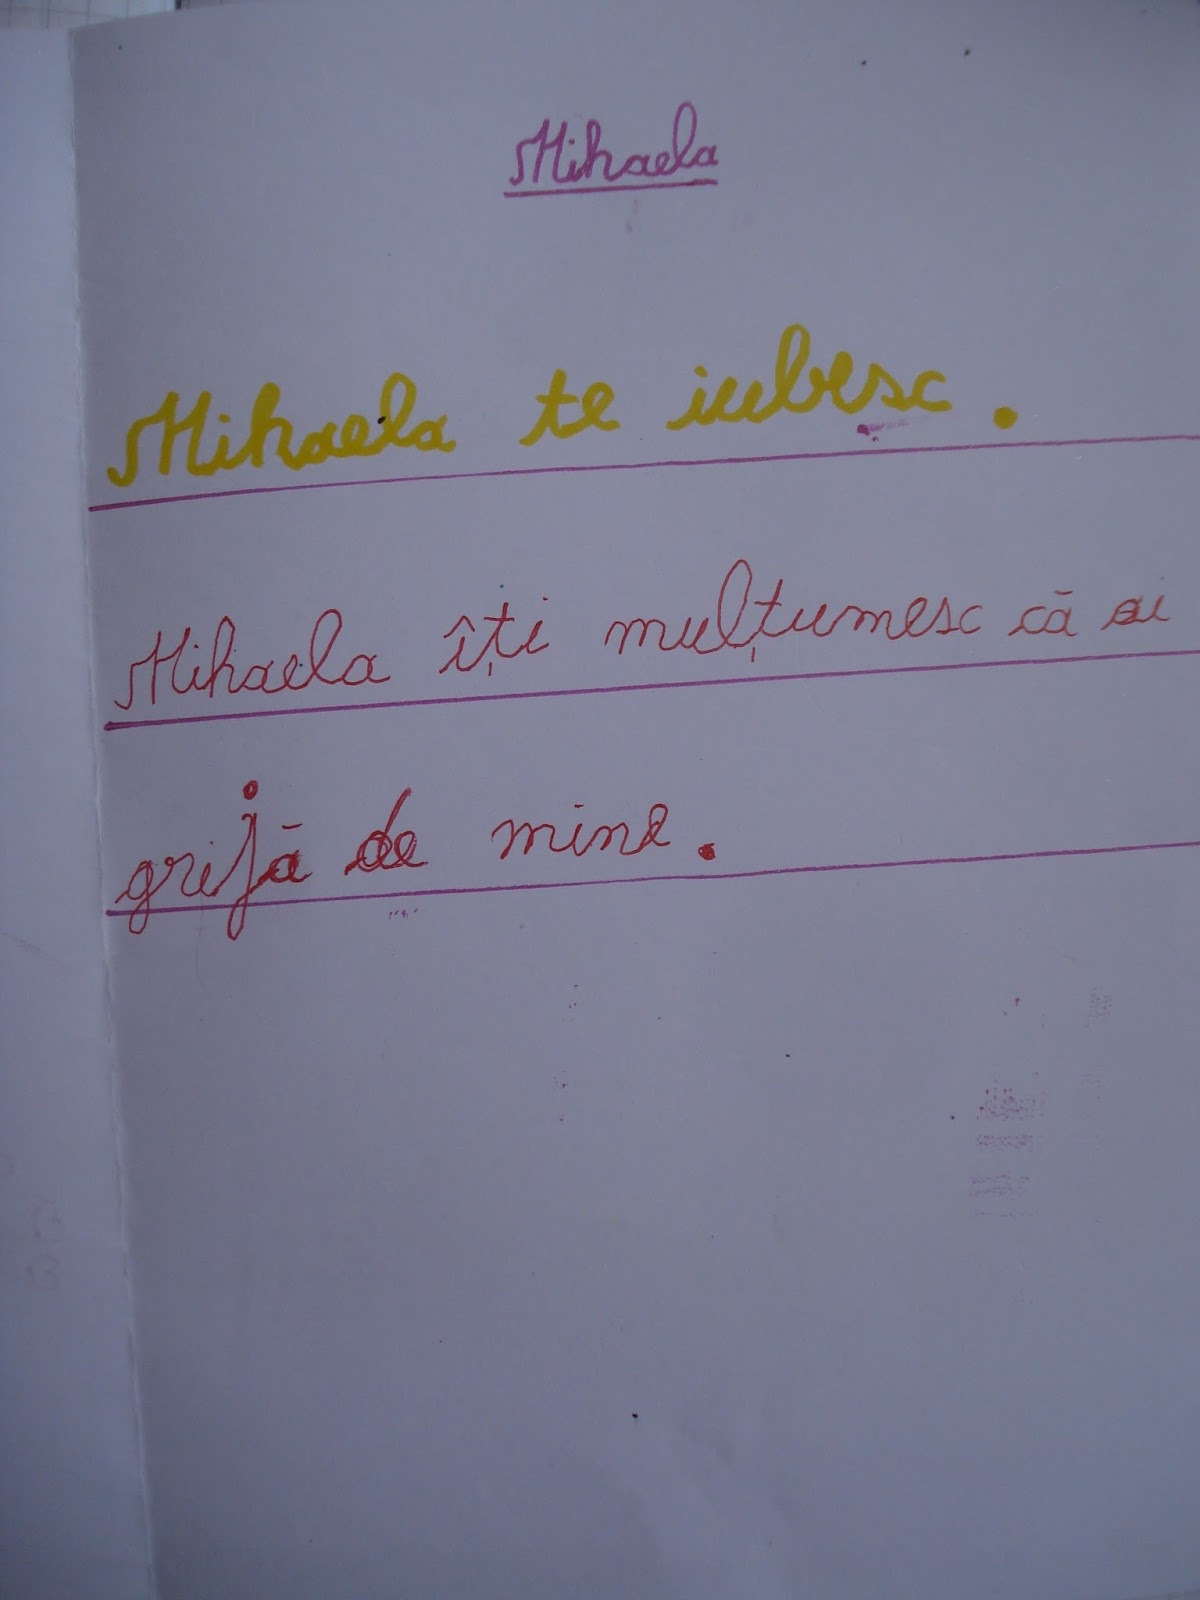 Mihaela
Mihaela te iubesc.
Mihaela îți mulțumesc că ai
grijă de mine.